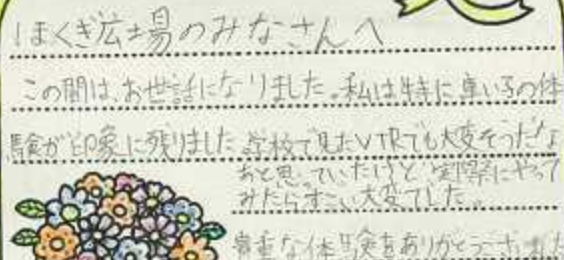 はまくぎ広場のみなさんへ
この間は、お世話になりました。私は特に車いすの体
験が印象に残りました。学校で見たVTRでも大変そうだな
あと思っていたけど、実際にやって
みたらすごい大変でした。
貴重な体験をありがとうございました